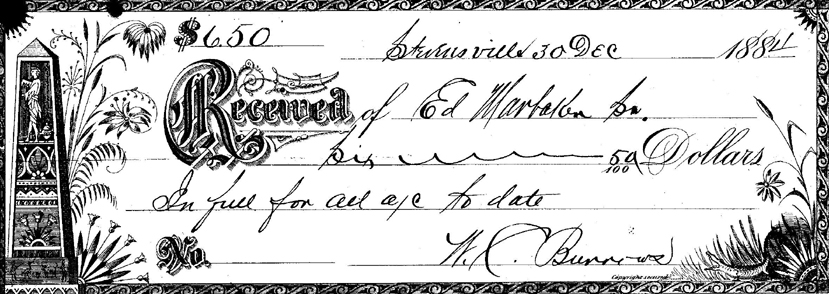 $6.50 Stevensville 30 Dec 1884
Received of Ed Marbaker Sr.
Six 50/100 Dollars
In full for all a/c to date
No. W. C. Burrows
Copyright secured